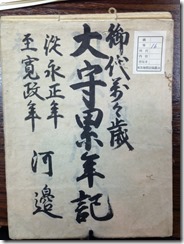 御代萬々歳
大守累年記
従永正年
至寛政年
河邉